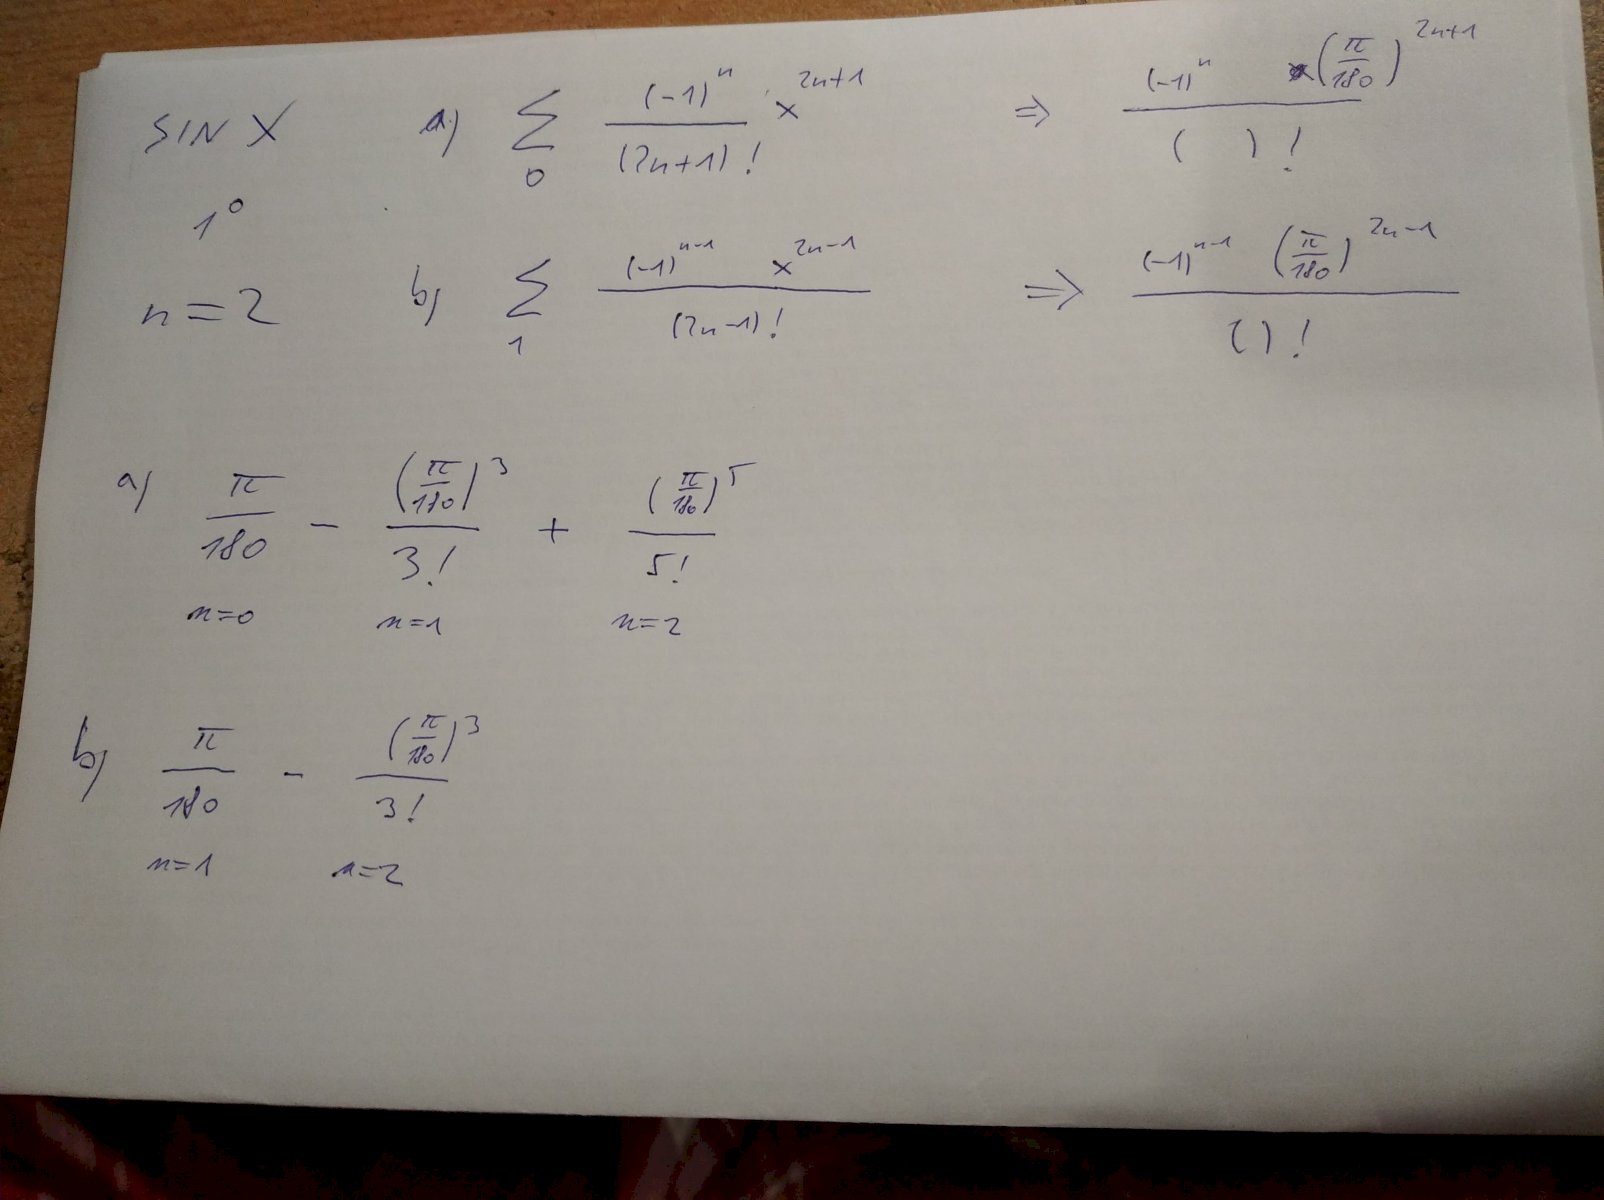 SIN X
1°
n = 2
a) ∑ 0 (-1)^n / (2n+1)! · x^(2n+1) ⇒ (-1)^n (π/180)^(2n+1) / ( )!
b) ∑ 1 (-1)^(n-1) x^(2n-1) / (2n-1)! ⇒ (-1)^(n-1) (π/180)^(2n-1) / ( )!
a) π/180 - (π/180)^3 / 3! + (π/180)^5 / 5!
n=0 n=1 n=2
b) π/180 - (π/180)^3 / 3!
n=1 n=2